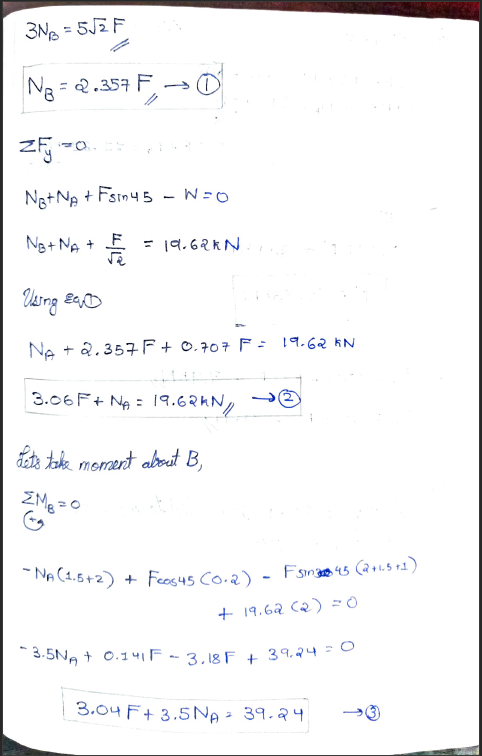 3N_B = 5√2 F
N_B = 2.357 F → ①
ΣF_y = 0
N_B + N_A + F sin45 - W = 0
N_B + N_A + F/√2 = 19.62 kN
Using Eq ①
N_A + 2.357 F + 0.707 F = 19.62 kN
3.06 F + N_A = 19.62 kN → ②
Lets take moment about B,
ΣM_B = 0
+
- N_A (1.5+2) + F cos45 (0.2) - F sin 45 (2+1.5+1)
+ 19.62 (2) = 0
- 3.5 N_A + 0.141 F - 3.18 F + 39.24 = 0
3.04 F + 3.5 N_A = 39.24 → ③